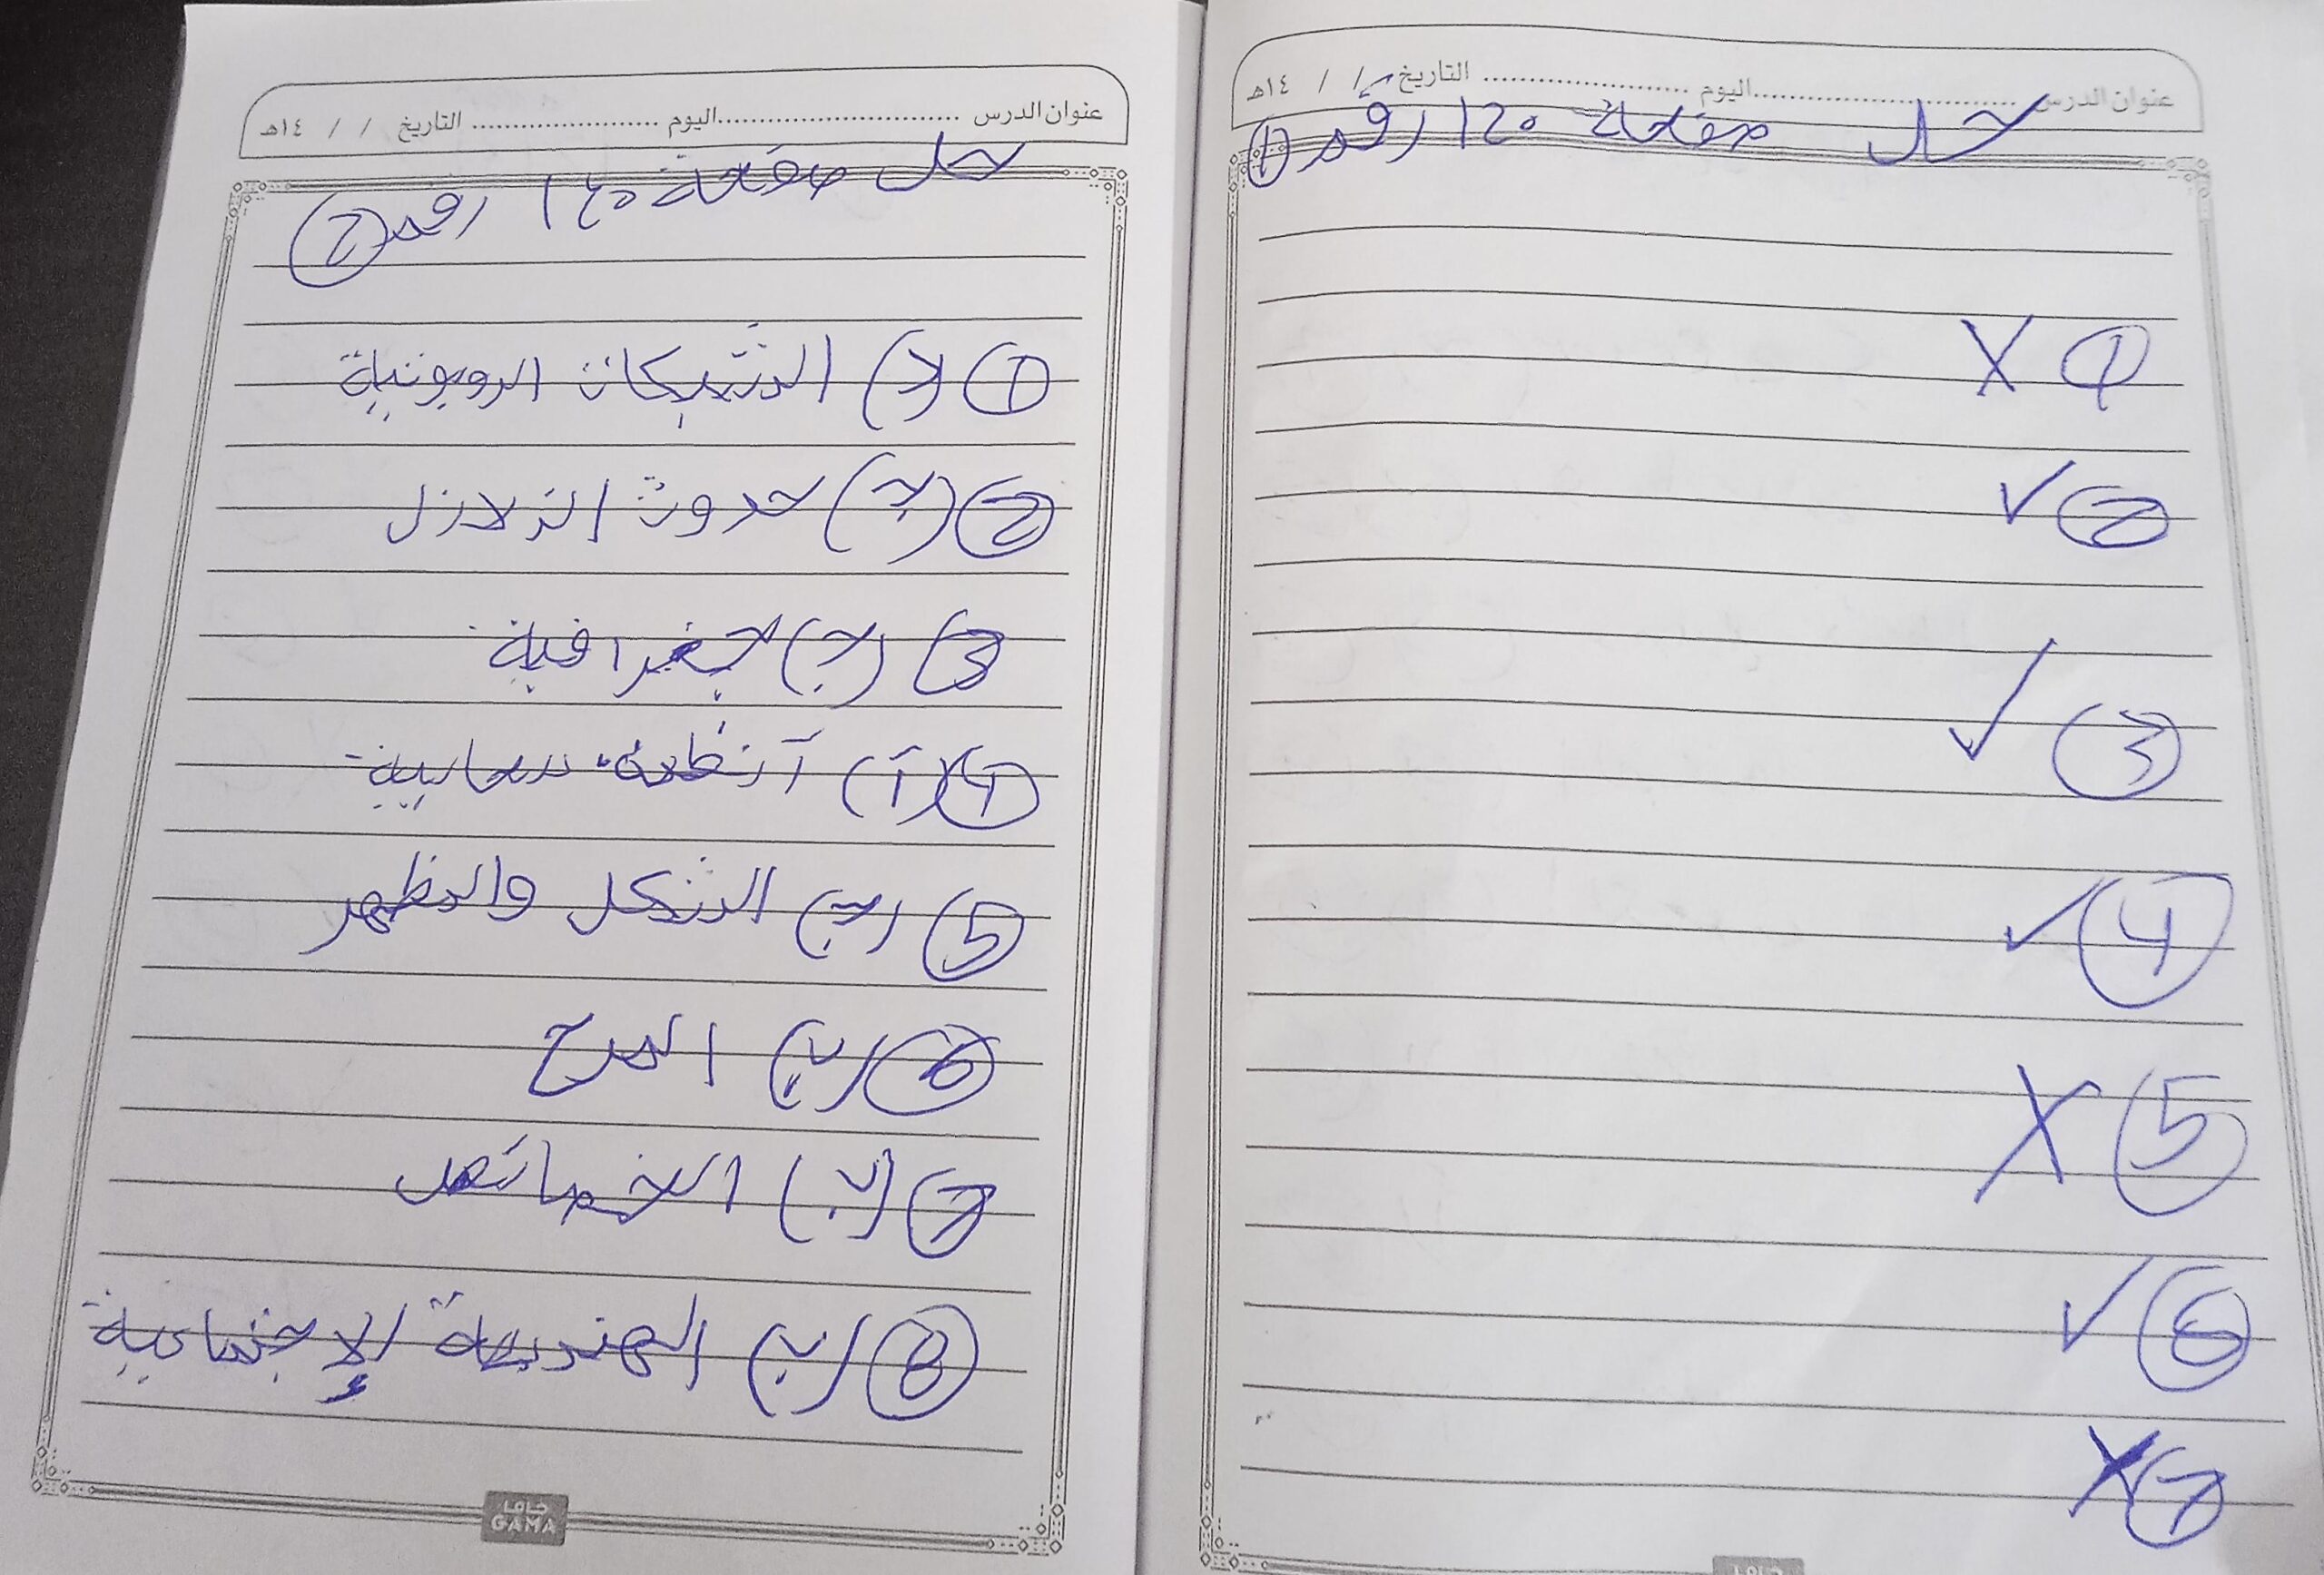 عنوان الدرس ........ اليوم ........ التاريخ / / ١٤هـ
حل صفحة ١٢٥ رقم ①
① X
② ✓
③ ✓
④ ✓
⑤ X
⑥ ✓
⑦ X
عنوان الدرس ........ اليوم ........ التاريخ / / ١٤هـ
حل صفحة رقم ②
① ( ) الشبكات الروبوتية
② (ج) حدوث الزلازل
③ (ج) جغرافية
④ (أ) أنظمة سحابية
⑤ (ب) الشكل والمظهر
⑥ (ب) المرح
⑦ (ب) الخصائص
⑧ (ب) الهندسة الإجتماعية
جاما
GAMA